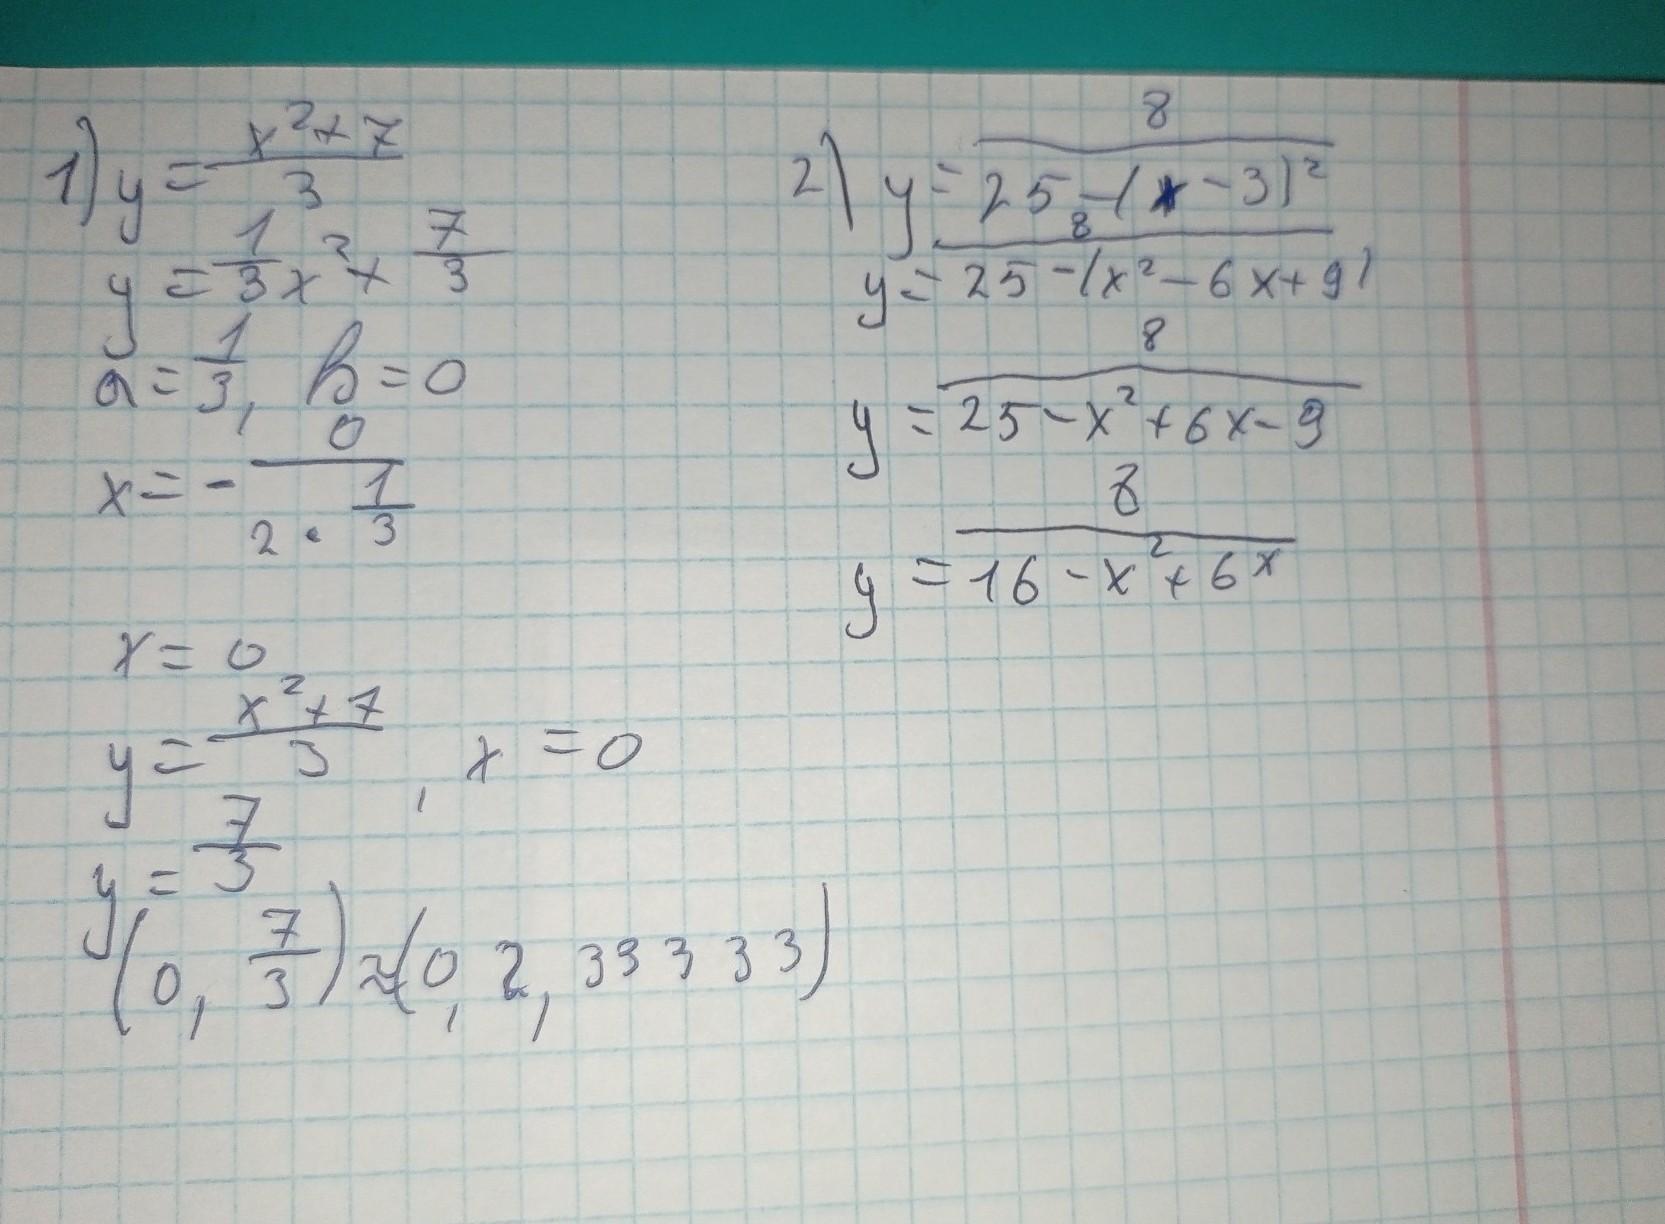 1) y = (x² + 7)/3
y = 1/3 x² + 7/3
a = 1/3, b = 0
x = - 0/(2 · 1/3)
x = 0
y = (x² + 7)/3, x = 0
y = 7/3
(0, 7/3) ≈ (0, 2,33333)
2) y = 8/(25 - (x - 3)²)
y = 8/(25 - (x² - 6x + 9))
y = 8/(25 - x² + 6x - 9)
y = 8/(16 - x² + 6x)